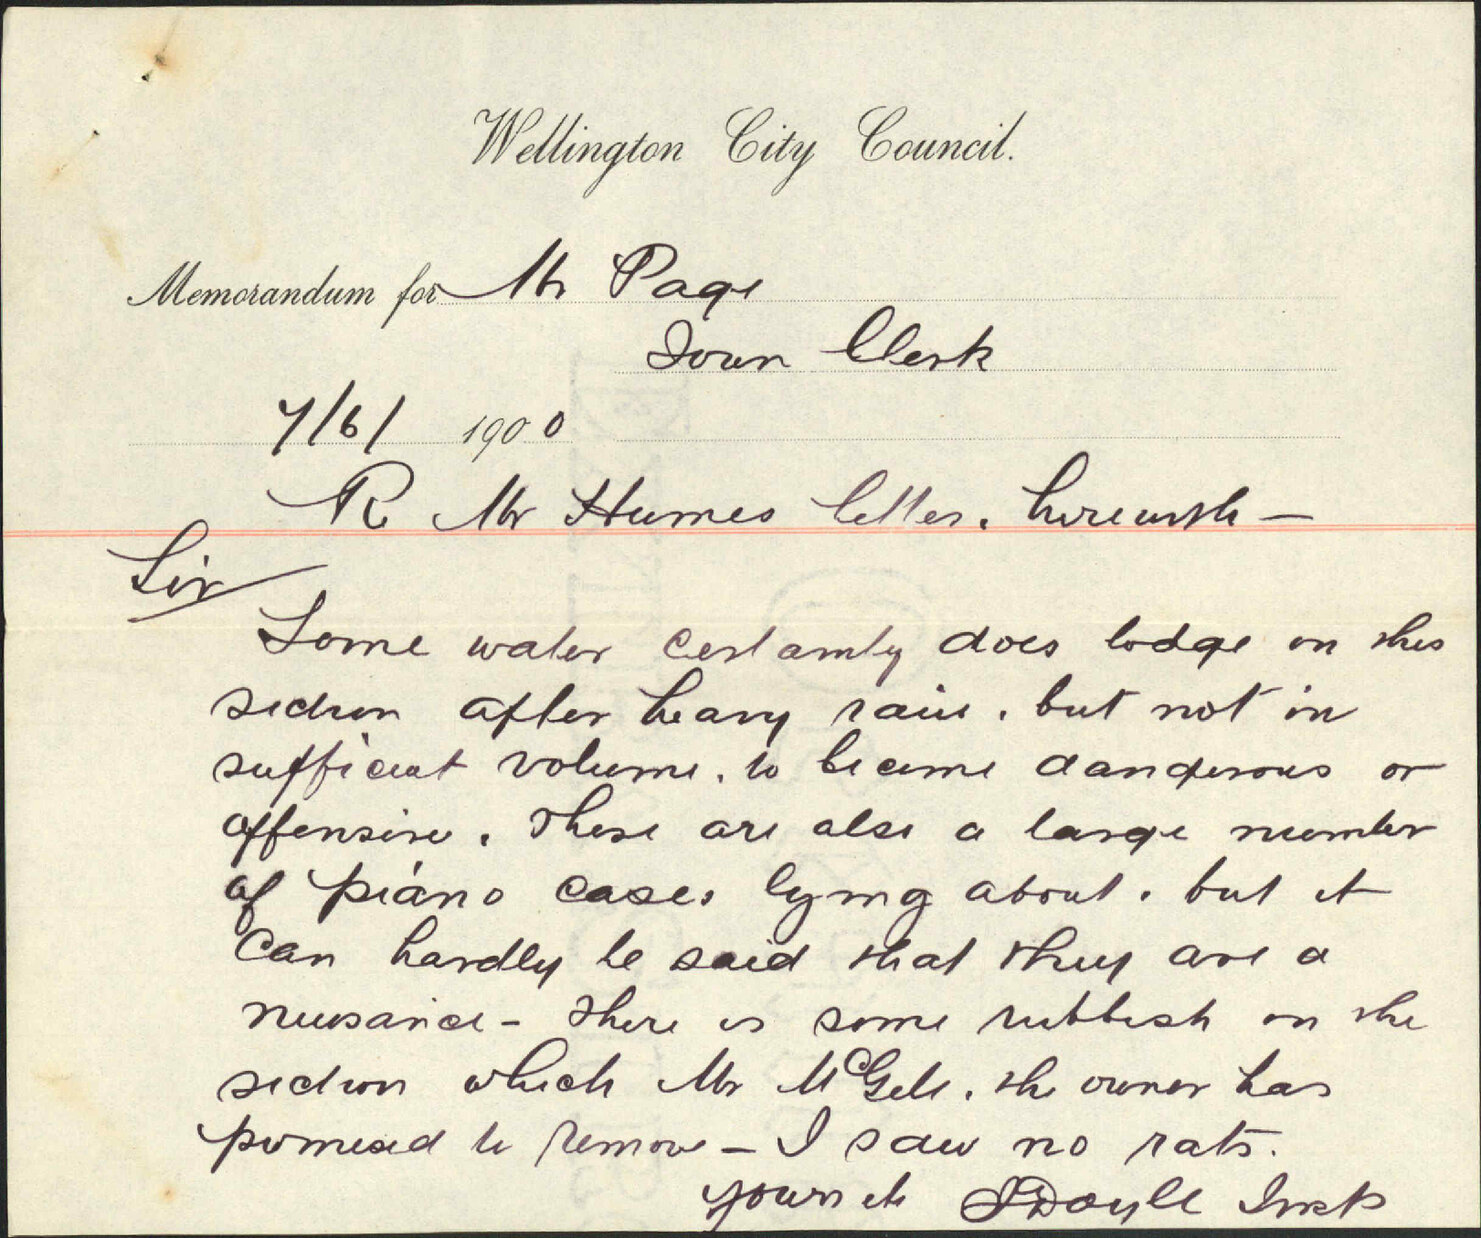 Wellington City Council.
Memorandum for Mr Page
Town Clerk
7/6/ 1900
Re Mr Humes letter. herewith —
Sir
Some water certainly does lodge on this
section after heavy rain. but not in
sufficient volume. to become dangerous or
offensive. There are also a large number
of piano cases lying about. but it
can hardly be said that they are a
nuisance - There is some rubbish on the
section which Mr McGill. the owner has
promised to remove - I saw no rats.
Yours etc JDoyle Insp